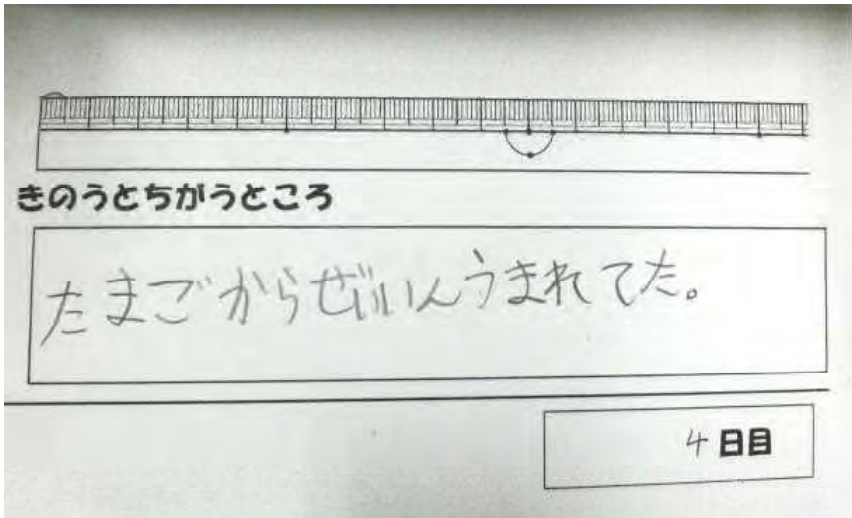 きのうとちがうところ
たまごからぜいいんうまれてた。
4日目